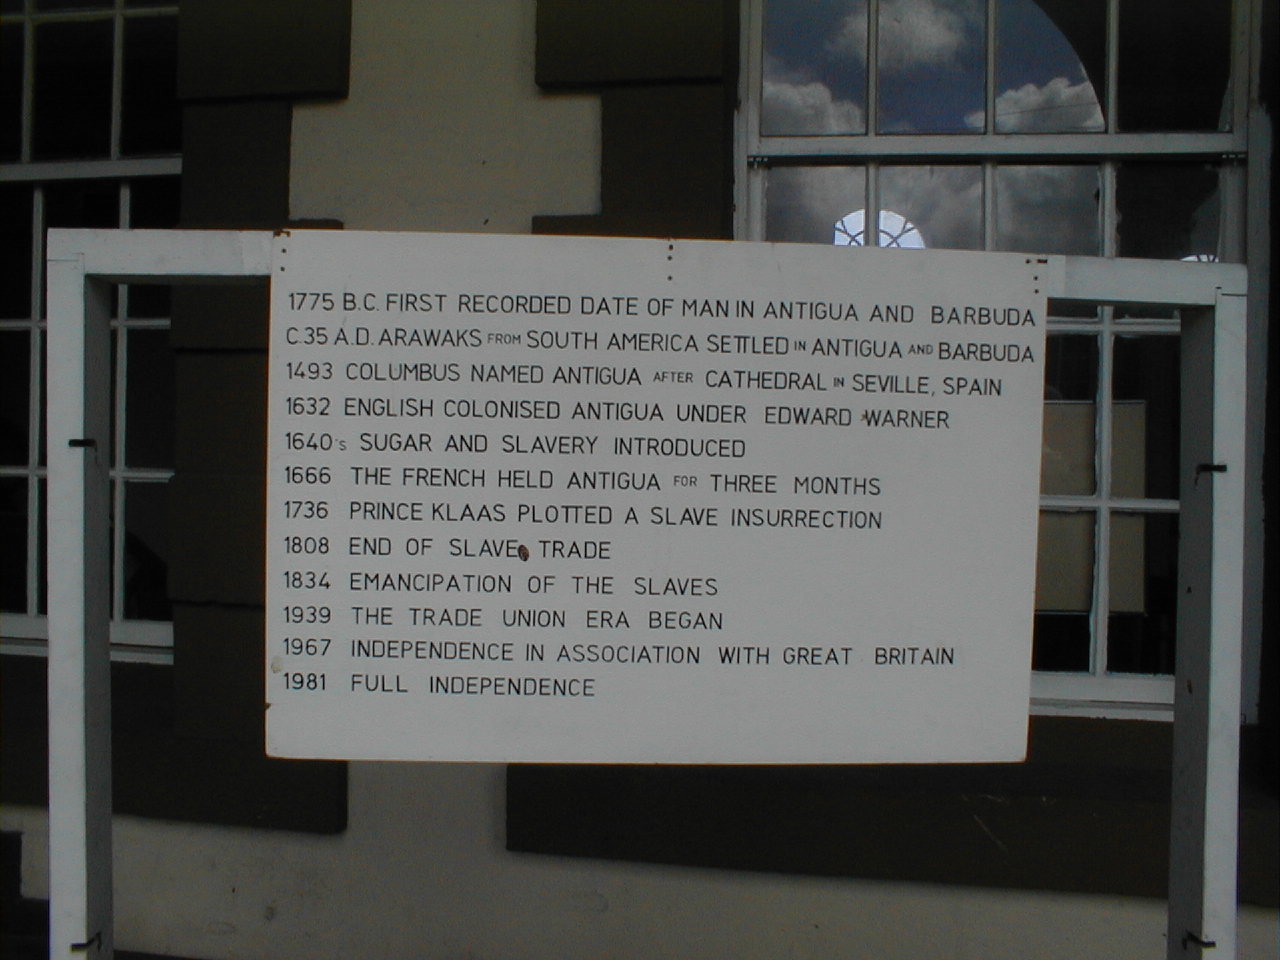 1775 B.C. FIRST RECORDED DATE OF MAN IN ANTIGUA AND BARBUDA
C.35 A.D. ARAWAKS FROM SOUTH AMERICA SETTLED IN ANTIGUA AND BARBUDA
1493 COLUMBUS NAMED ANTIGUA AFTER CATHEDRAL IN SEVILLE, SPAIN
1632 ENGLISH COLONISED ANTIGUA UNDER EDWARD WARNER
1640's SUGAR AND SLAVERY INTRODUCED
1666 THE FRENCH HELD ANTIGUA FOR THREE MONTHS
1736 PRINCE KLAAS PLOTTED A SLAVE INSURRECTION
1808 END OF SLAVE TRADE
1834 EMANCIPATION OF THE SLAVES
1939 THE TRADE UNION ERA BEGAN
1967 INDEPENDENCE IN ASSOCIATION WITH GREAT BRITAIN
1981 FULL INDEPENDENCE